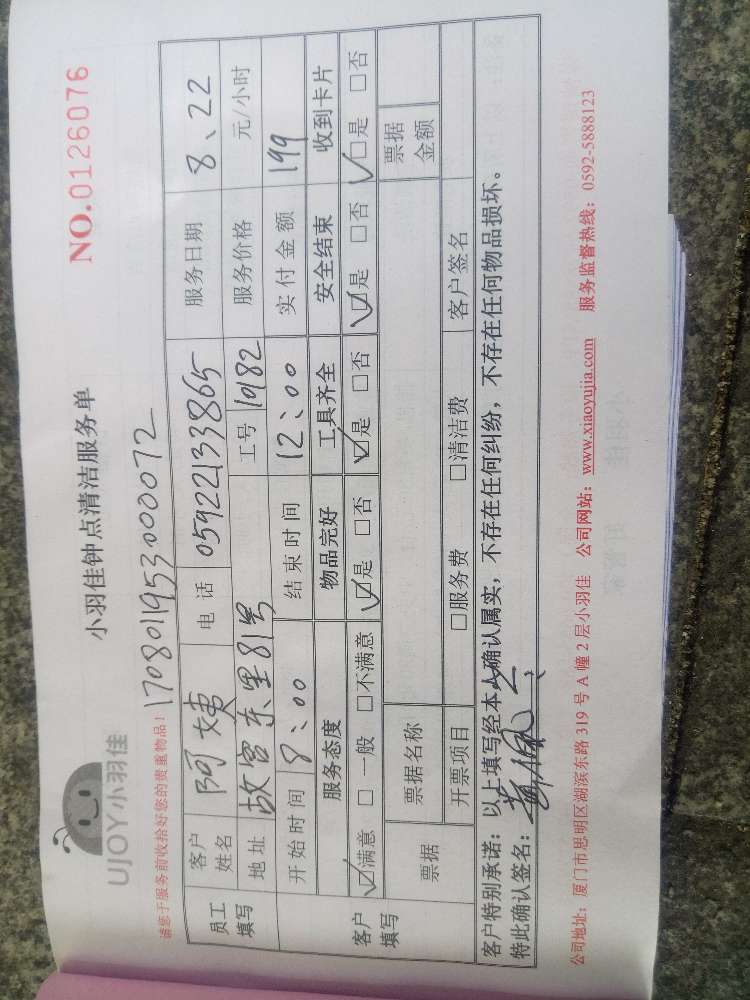 UJOY小羽佳
小羽佳钟点清洁服务单
NO.0126076
请您于服务前收拾好您的贵重物品！
17080195300072
员工填写
客户姓名 阿姨 电话 05922133865 服务日期 8、22
地址 故宫东里81号 工号 1982 服务价格 元/小时
开始时间 8:00 结束时间 12:00 实付金额 199
客户填写
服务态度 物品完好 工具齐全 安全结束 收到卡片
☑满意 □一般 □不满意 ☑是 □否 ☑是 □否 ☑是 □否 ☑是 □否
票据 票据名称 票据金额
开票项目 □服务费 □清洁费 客户签名
客户特别承诺：以上填写经本人确认属实，不存在任何纠纷，不存在任何物品损坏。
特此确认签名：
公司地址：厦门市思明区湖滨东路319号A幢2层小羽佳 公司网站：www.xiaoyujia.com 服务监督热线：0592-5888123